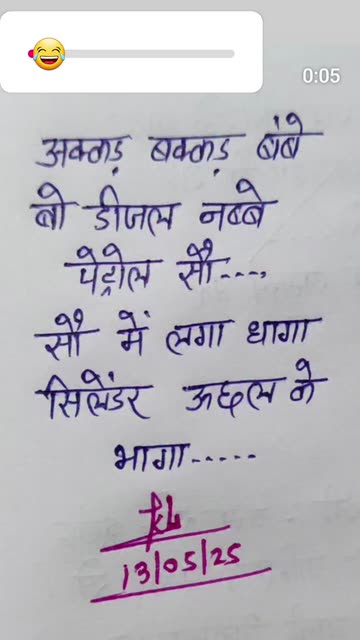 0:05
अक्कड़ बक्कड़ बंबे
बो डीजल नब्बे
पेट्रोल सौ....
सौ में लगा धागा
सिलेंडर ऊछल के
भागा.....
13/05/25